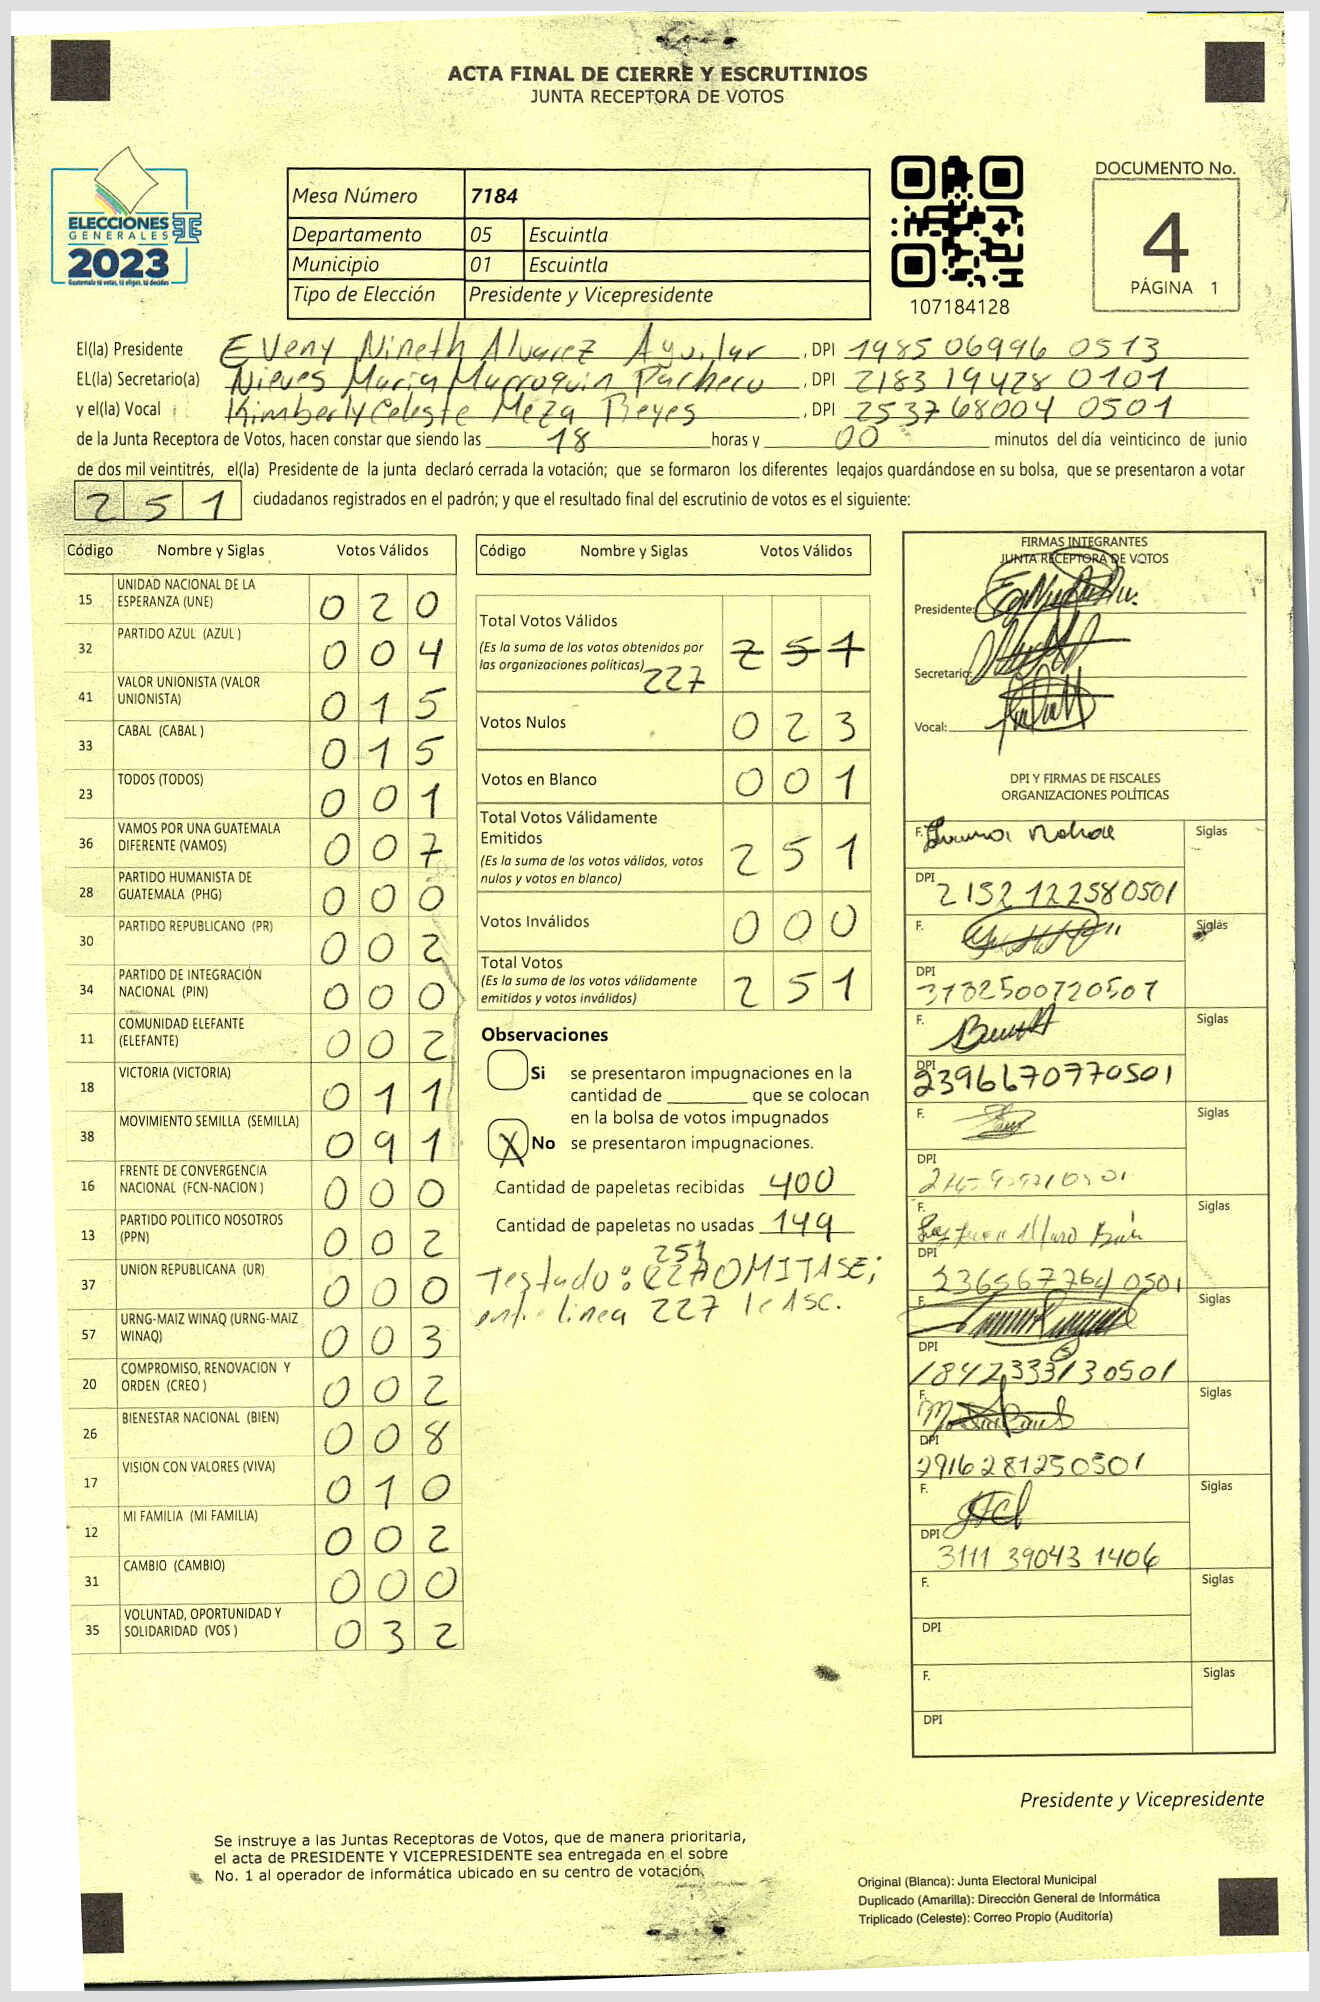 ACTA FINAL DE CIERRE Y ESCRUTINIOS
JUNTA RECEPTORA DE VOTOS
ELECCIONES
GENERALES
2023
Guatemala tú votas, tú eliges, tú decides
Mesa Número 7184
Departamento 05 Escuintla
Municipio 01 Escuintla
Tipo de Elección Presidente y Vicepresidente
107184128
DOCUMENTO No.
4
PÁGINA 1
El(la) Presidente Eveny Nineth Alvarez Aguilar , DPI 1985 06996 0513
EL(la) Secretario(a) Nieves Maria Marroquin Pacheco , DPI 2183 19428 0101
y el(la) Vocal Kimberly Celeste Meza Reyes , DPI 2537 68004 0501
de la Junta Receptora de Votos, hacen constar que siendo las 18 horas y 00 minutos del día veinticinco de junio
de dos mil veintitrés, el(la) Presidente de la junta declaró cerrada la votación; que se formaron los diferentes legajos guardándose en su bolsa, que se presentaron a votar
251 ciudadanos registrados en el padrón; y que el resultado final del escrutinio de votos es el siguiente:
Código Nombre y Siglas Votos Válidos
15 UNIDAD NACIONAL DE LA ESPERANZA (UNE) 020
32 PARTIDO AZUL (AZUL ) 004
41 VALOR UNIONISTA (VALOR UNIONISTA) 015
33 CABAL (CABAL ) 015
23 TODOS (TODOS) 001
36 VAMOS POR UNA GUATEMALA DIFERENTE (VAMOS) 007
28 PARTIDO HUMANISTA DE GUATEMALA (PHG) 000
30 PARTIDO REPUBLICANO (PR) 002
34 PARTIDO DE INTEGRACIÓN NACIONAL (PIN) 000
11 COMUNIDAD ELEFANTE (ELEFANTE) 002
18 VICTORIA (VICTORIA) 011
38 MOVIMIENTO SEMILLA (SEMILLA) 091
16 FRENTE DE CONVERGENCIA NACIONAL (FCN-NACION ) 000
13 PARTIDO POLITICO NOSOTROS (PPN) 002
37 UNION REPUBLICANA (UR) 000
57 URNG-MAIZ WINAQ (URNG-MAIZ WINAQ) 003
20 COMPROMISO, RENOVACION Y ORDEN (CREO ) 002
26 BIENESTAR NACIONAL (BIEN) 008
17 VISION CON VALORES (VIVA) 010
12 MI FAMILIA (MI FAMILIA) 002
31 CAMBIO (CAMBIO) 000
35 VOLUNTAD, OPORTUNIDAD Y SOLIDARIDAD (VOS ) 032
Código Nombre y Siglas Votos Válidos
Total Votos Válidos
(Es la suma de los votos obtenidos por
las organizaciones políticas) 251
227
Votos Nulos 023
Votos en Blanco 001
Total Votos Válidamente
Emitidos
(Es la suma de los votos válidos, votos
nulos y votos en blanco) 251
Votos Inválidos 000
Total Votos
(Es la suma de los votos válidamente
emitidos y votos inválidos) 251
Observaciones
Si se presentaron impugnaciones en la
cantidad de ________ que se colocan
en la bolsa de votos impugnados
X No se presentaron impugnaciones.
Cantidad de papeletas recibidas 400
Cantidad de papeletas no usadas 149
251
Testado: OMITASE;
entre linea 227 lease.
FIRMAS INTEGRANTES
JUNTA RECEPTORA DE VOTOS
Presidente:
Secretario:
Vocal:
DPI Y FIRMAS DE FISCALES
ORGANIZACIONES POLÍTICAS
F. Siglas
DPI 2152122580501
F. Siglas
DPI 3182500720501
F. Siglas
DPI 2396670770501
F. Siglas
DPI
F. Siglas
DPI 236567764 0501
F. Siglas
DPI 1842333130501
F. Siglas
DPI 2916281250501
F. Siglas
DPI 3111 39043 1406
F. Siglas
DPI
F. Siglas
DPI
Presidente y Vicepresidente
Se instruye a las Juntas Receptoras de Votos, que de manera prioritaria,
el acta de PRESIDENTE Y VICEPRESIDENTE sea entregada en el sobre
No. 1 al operador de informática ubicado en su centro de votación.
Original (Blanca): Junta Electoral Municipal
Duplicado (Amarilla): Dirección General de Informática
Triplicado (Celeste): Correo Propio (Auditoría)